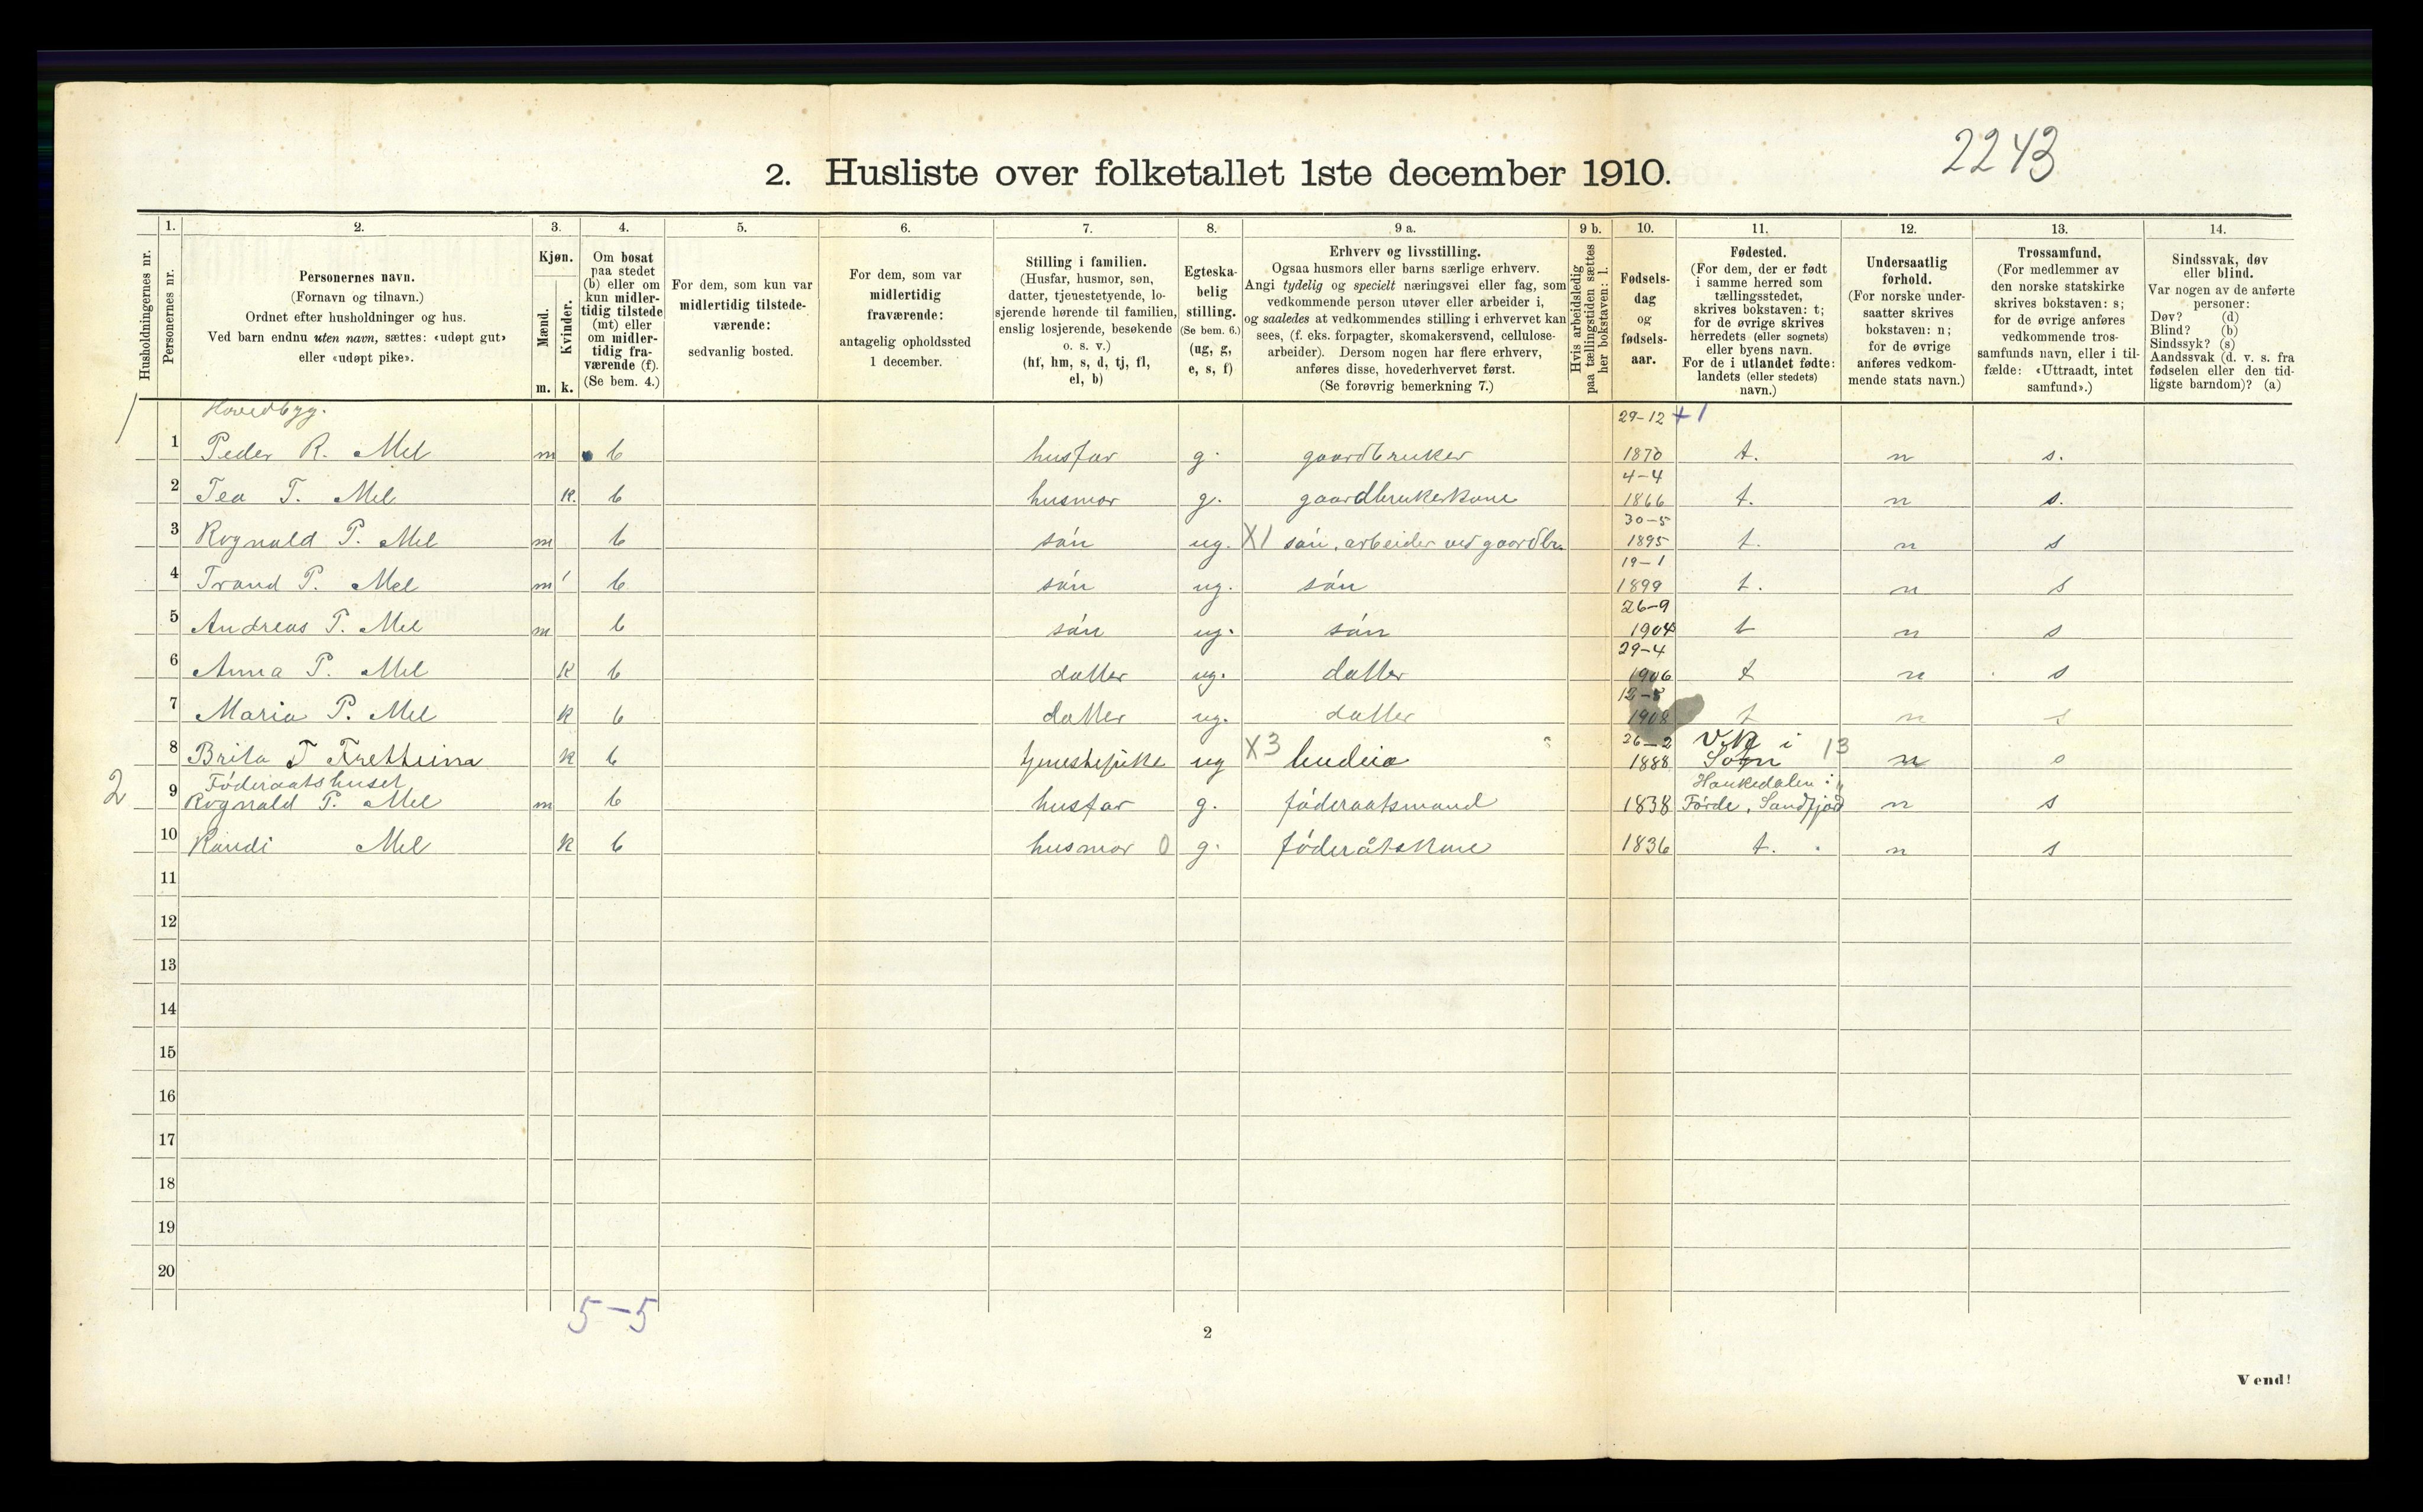 2243
2. Husliste over folketallet 1ste december 1910.
Husholdningernes nr.
1.
Personernes nr.
2.
Personernes navn.
(Fornavn og tilnavn.)
Ordnet efter husholdninger og hus.
Ved barn endnu uten navn, sættes: «udøpt gut»
eller «udøpt pike».
3.
Kjøn.
Mænd.
Kvinder.
m. k.
4.
Om bosat
paa stedet
(b) eller om
kun midler-
tidig tilstede
(mt) eller
om midler-
tidig fra-
værende (f).
(Se bem. 4.)
5.
For dem, som kun var
midlertidig tilstede-
værende:
sedvanlig bosted.
6.
For dem, som var
midlertidig
fraværende:
antagelig opholdssted
1 december.
7.
Stilling i familien.
(Husfar, husmor, søn,
datter, tjenestetyende, lo-
sjerende hørende til familien,
enslig losjerende, besøkende
o. s. v.)
(hf, hm, s, d, tj, fl,
el, b)
8.
Egteska-
belig
stilling.
(Se bem. 6.)
(ug, g,
e, s, f)
9 a.
Erhverv og livsstilling.
Ogsaa husmors eller barns særlige erhverv.
Angi tydelig og specielt næringsvei eller fag, som
vedkommende person utøver eller arbeider i,
og saaledes at vedkommendes stilling i erhvervet kan
sees, (f. eks. forpagter, skomakersvend, cellulose-
arbeider). Dersom nogen har flere erhverv,
anføres disse, hovederhvervet først.
(Se forøvrig bemerkning 7.)
9 b.
Hvis arbeidsledig
paa tællingstiden sættes
her bokstaven: l.
10.
Fødsels-
dag
og
fødsels-
aar.
11.
Fødested.
(For dem, der er født
i samme herred som
tællingsstedet,
skrives bokstaven: t;
for de øvrige skrives
herredets (eller sognets)
eller byens navn.
For de i utlandet fødte:
landets (eller stedets)
navn.)
12.
Undersaatlig
forhold.
(For norske under-
saatter skrives
bokstaven: n;
for de øvrige
anføres vedkom-
mende stats navn.)
13.
Trossamfund.
(For medlemmer av
den norske statskirke
skrives bokstaven: s;
for de øvrige anføres
vedkommende tros-
samfunds navn, eller i til-
fælde: «Uttraadt, intet
samfund».)
14.
Sindssvak, døv
eller blind.
Var nogen av de anførte
personer:
Døv? (d)
Blind? (b)
Sindssyk? (s)
Aandssvak (d. v. s. fra
fødselen eller den tid-
ligste barndom)? (a)
Hovedbyg. 29-12 +1
1 1 Peder R. Mel m b husfar g. gaardbruker 1870 t. n s.
4-4
2 Tea T. Mel k. b husmor g. gaardbrukerkone 1866 t. n s.
30-5
3 Rognald P. Mel m b søn ug. X1 søn, arbeider ved gaardbr. 1895 t. n s
19-1
4 Trand P. Mel m b søn ug. søn 1899 t. n s
26-9
5 Andreas P. Mel m b søn ug. søn 1904 t n s
29-4
6 Anna P. Mel k b datter ug. datter 1906 t n s
7 Maria P. Mel k b datter ug. datter 1908 t n s
26-2 Vik i 13
8 Brita T Fretheim k b tjenestepike ug X3 budeia 1888 Sogn n s
Føderaatshuset Haukedalen i
2 9 Rognald P. Mel m b husfar g. føderaatsmand 1838 Førde, Søndfjord n s
10 Randi Mel k b husmor 0 g. føderåtskone 1836 t. n s
11
12
13
14
15
16
17
18
19
20
5-5
2
Vend!